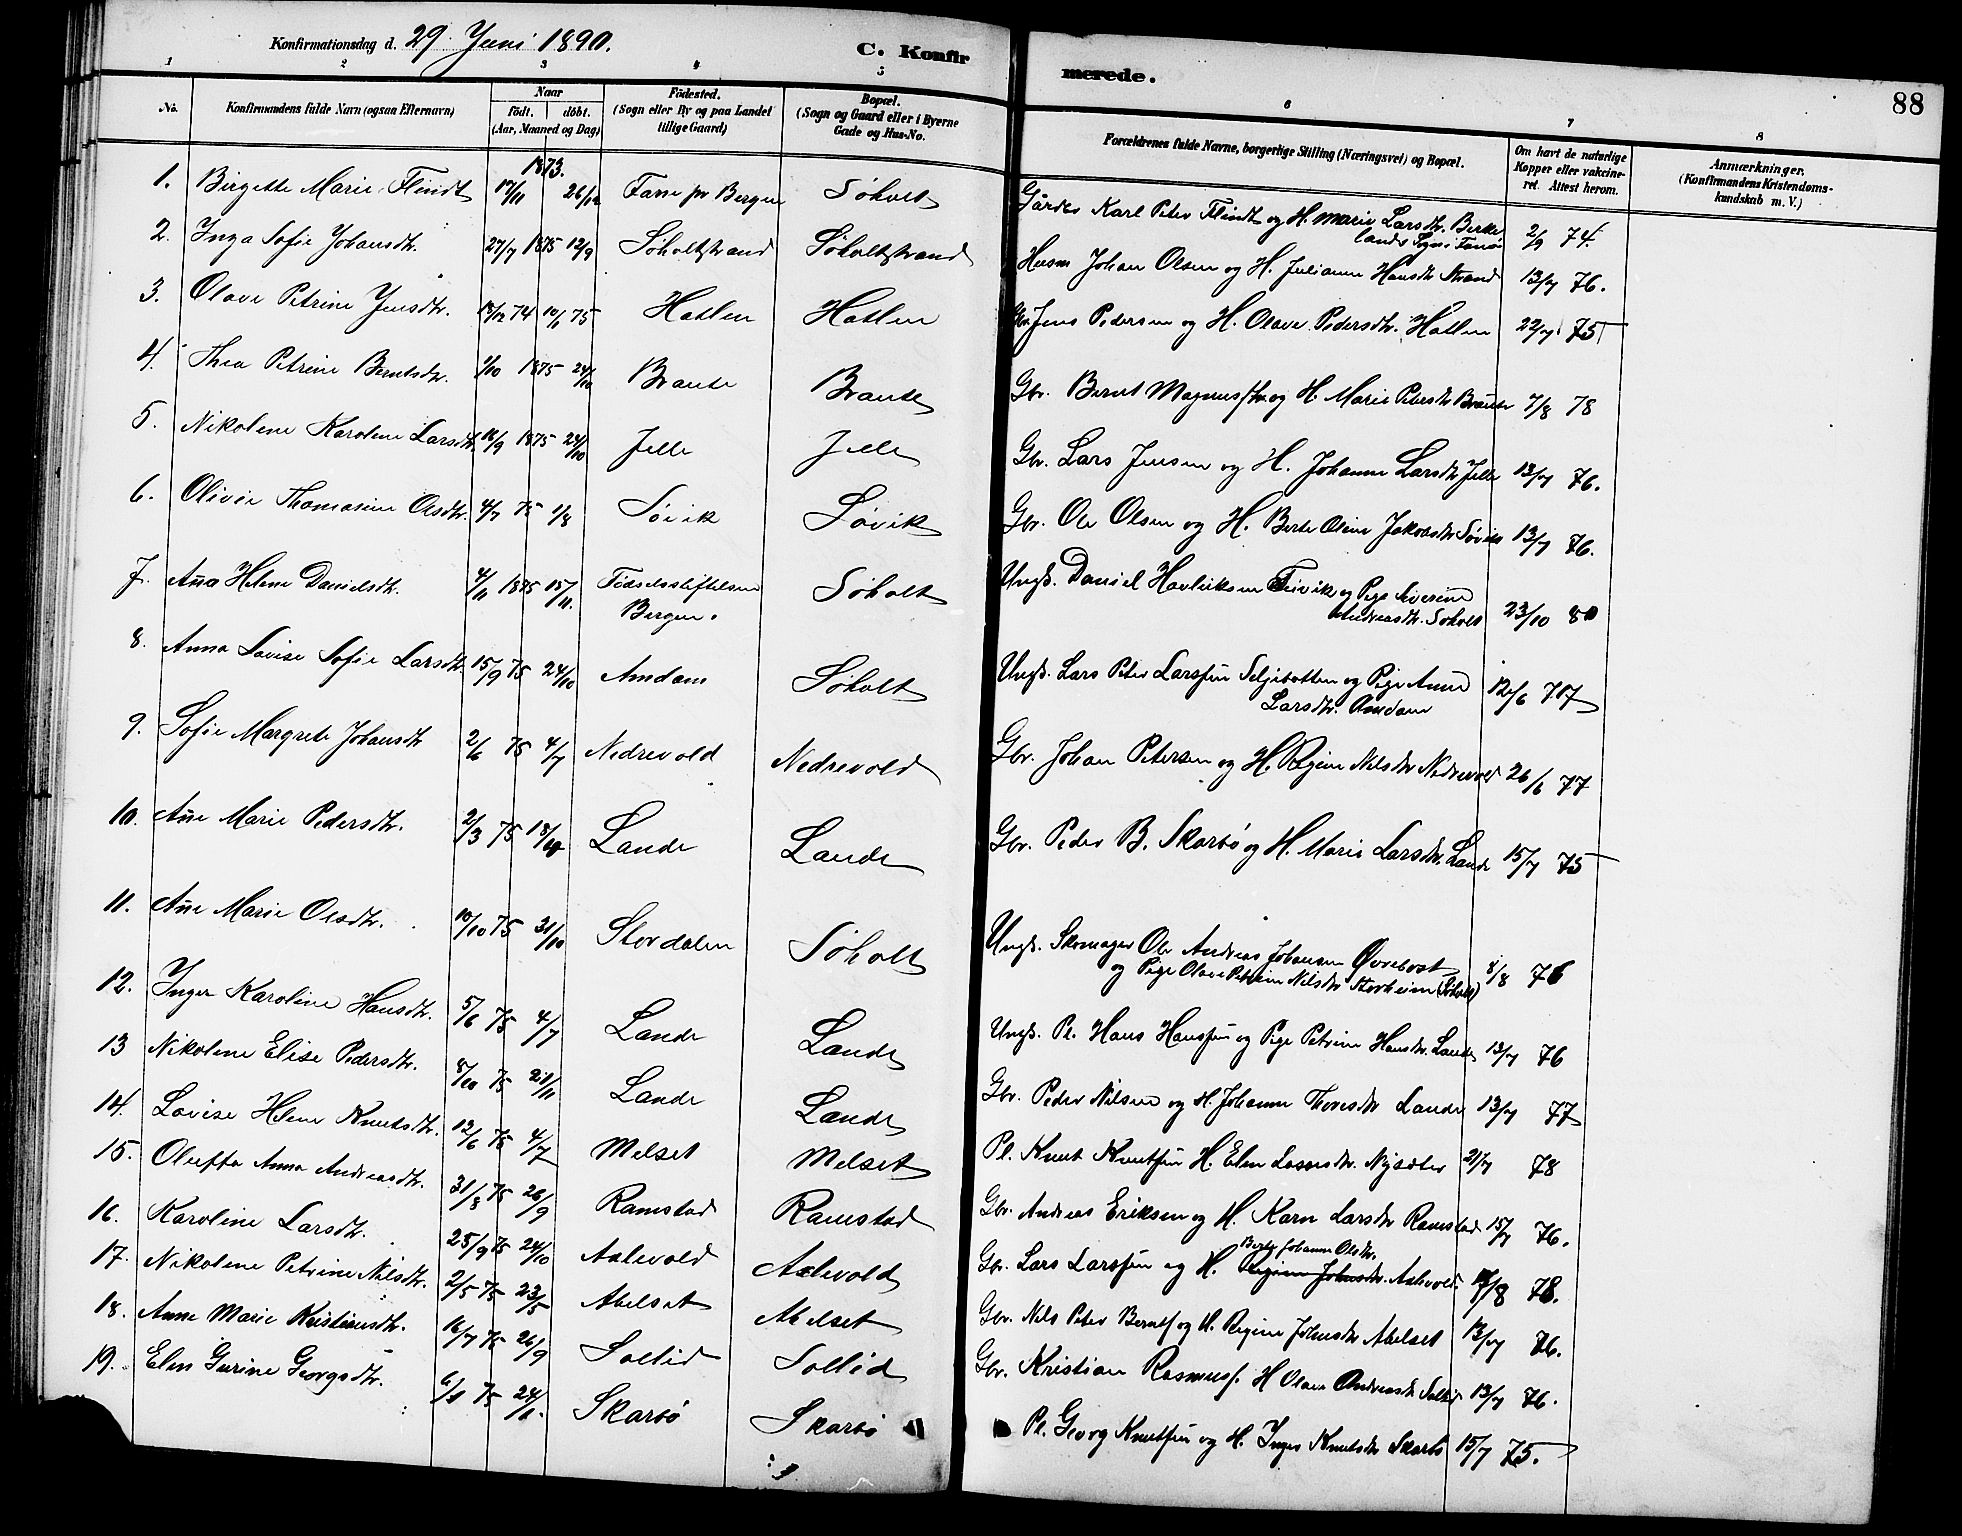 Konfirmationsdag d. 29 Juni 1890.
C. Konfirmerede.
88
1 2 3 4 5 6 7 8
No.
Konfirmandens fulde Navn (ogsaa Efternavn)
Naar
födt. döbt.
(Aar, Maaned og Dag)
Födested.
(Sogn eller By og paa Landet
tillige Gaard)
Bopæl.
(Sogn og Gaard eller i Byerne
Gade og Hus-No.
Forældrenes fulde Navne, borgerlige Stilling (Næringsvei) og Bopæl.
Om havt de naturlige
Kopper eller vakcine-
ret. Attest herom.
Anmærkninger.
(Konfirmandens Kristendoms-
kundskab m. V.)
1873.
1. Birgitte Marie Flindt 17/11 26/12 Fane pr Bergen Söholt Karl Peter Flindt og H. Marie Larsdtr. 2/9 74.
2. Inga Sofie Johansdtr. 27/7 1875 12/9 Söholtstrand Söholtstrand Husm Johan Olsen og H. Julianne Hansdtr Strand 13/7 76.
3. Olave Petrine Jensdtr. 74 10/1 75 Hatlen Hatlen Gbr Jens Pedersen og H. Olave Pedersdtr. Hatlen 22/7 75
4. Thea Petrine Berntsdtr. 1/10 1875 24/10 Braute Braute Gbr. Bernt Magnus og H. Marie Petersdtr Braute 7/8 78
5. Nikoline Karoline Larsdtr. 16/9 1875 24/10 Jelle Jelle Gbr. Lars Jensen og H. Johanne Larsdtr Jelle 13/7 76.
6. Olivie Thomasine Olsdtr. 4/7 75 1/8 Sövik Sövik Gbr. Ole Olsen og H. Berte Oline Jakobsdtr Sövik 13/7 76.
7. Ana Helene Danielsdtr. 4/11 1875 15/11. Födselsstiftelsen Söholt Ungk. Daniel og Pige
Bergen. Andreasdtr. Söholt 23/10 80
8. Anna Lovise Sofie Larsdtr. 15/9 75 24/10 Amdam Söholt Ungk. Lars Peter Larssen Seljebotten og Pige Anne 12/6 77
Larsdtr. Amdam
9. Sofie Margrete Johansdtr 2/6 75 4/7 Nedrevold Nedrevold Gbr. Johan Petersen og H. Regine Nilsdtr Nedrevold 26/6 77
10. Ane Marie Pedersdtr. 2/3 75 18/4 Lande Lande Gbr. Peder B. Skarbö og H. Marie Larsdtr. Lande 15/7 75
11. Ane Marie Olsdtr. 10/10 75 31/10 Stordalen Söholt Ungk. Skomager Ole Andreas Johansen 8/8 76
og Pige Olave Petrine Nilsdtr Storheim (Söholt)
12. Inger Karoline Hansdtr. 5/6 75 4/7 Lande Lande Ungk. Pl. Hans Hanssen og Pige Petrine Hansdtr. Lande 13/7 76
13 Nikoline Elise Pedersdtr. 8/10 75 21/11 Lande Lande Gbr. Peder Nilsen og H. Johanne Thoresdtr Lande 13/7 77
14. Lovise Helene Knutsdtr. 12/6 75 4/7 Melset Melset Pl. Knut Knutsen H. Elen Lassesdtr. Nysæter 21/7 78
15. Oluffa Anna Andreasdtr. 31/8 75 26/9 Ramstad Ramstad Gbr. Andreas Eriksen og H. Karn Larsdtr Ramstad 15/7 76.
16. Karoline Larsdtr. 25/9 75 24/10 Aalevold Aalevold Gbr. Lars Larssen og H. Berte Johanne Olsdtr. Aalevold 78.
17. Nikoline Petrine Nilsdtr. 2/5 75 23/5 Abelset Abelset Gbr. Nils Peter Bernts og H. Regine Johnsdtr Abelset 13/7 76.
18. Anne Marie Kristiansdtr. 16/7 75 26/9 Sollid Sollid Gbr. Kristian Rasmuss. H Olave Andreasdtr Sollid 13/7 76.
19. Elen Gurine Georgsdtr. 75 Skarbö Skarbö Pl. Georg Knutsen og H. Inger Knutsdtr Skarbö 15/7 75.